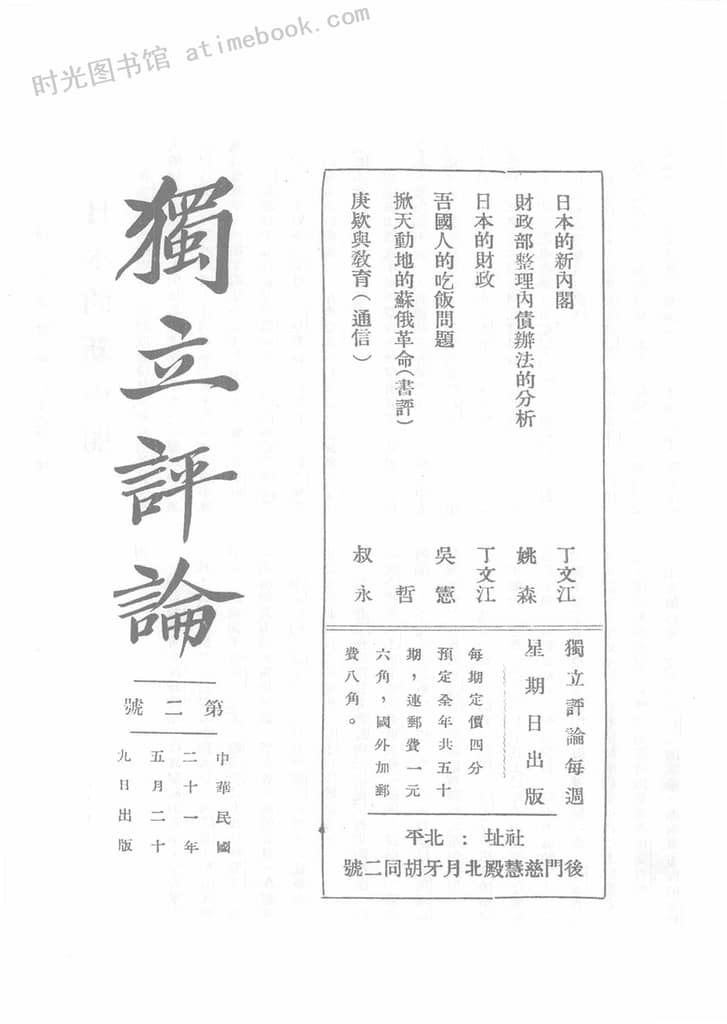 时光图书馆 atimebook.com
日本的新內閣 丁文江
財政部整理內債辦法的分析 姚森
日本的財政 丁文江
吾國人的吃飯問題 吳憲
掀天動地的蘇俄革命(書評) 哲
庚款與教育(通信) 叔永
獨立評論每週
星期日出版
每期定價四分
預定全年共五十
期,連郵費一元
六角,國外加郵
費八角。
社址:北平
後門慈慧殿北月牙胡同二號
獨立評論
第二號
中華民國
二十一年
五月二十
九日出版